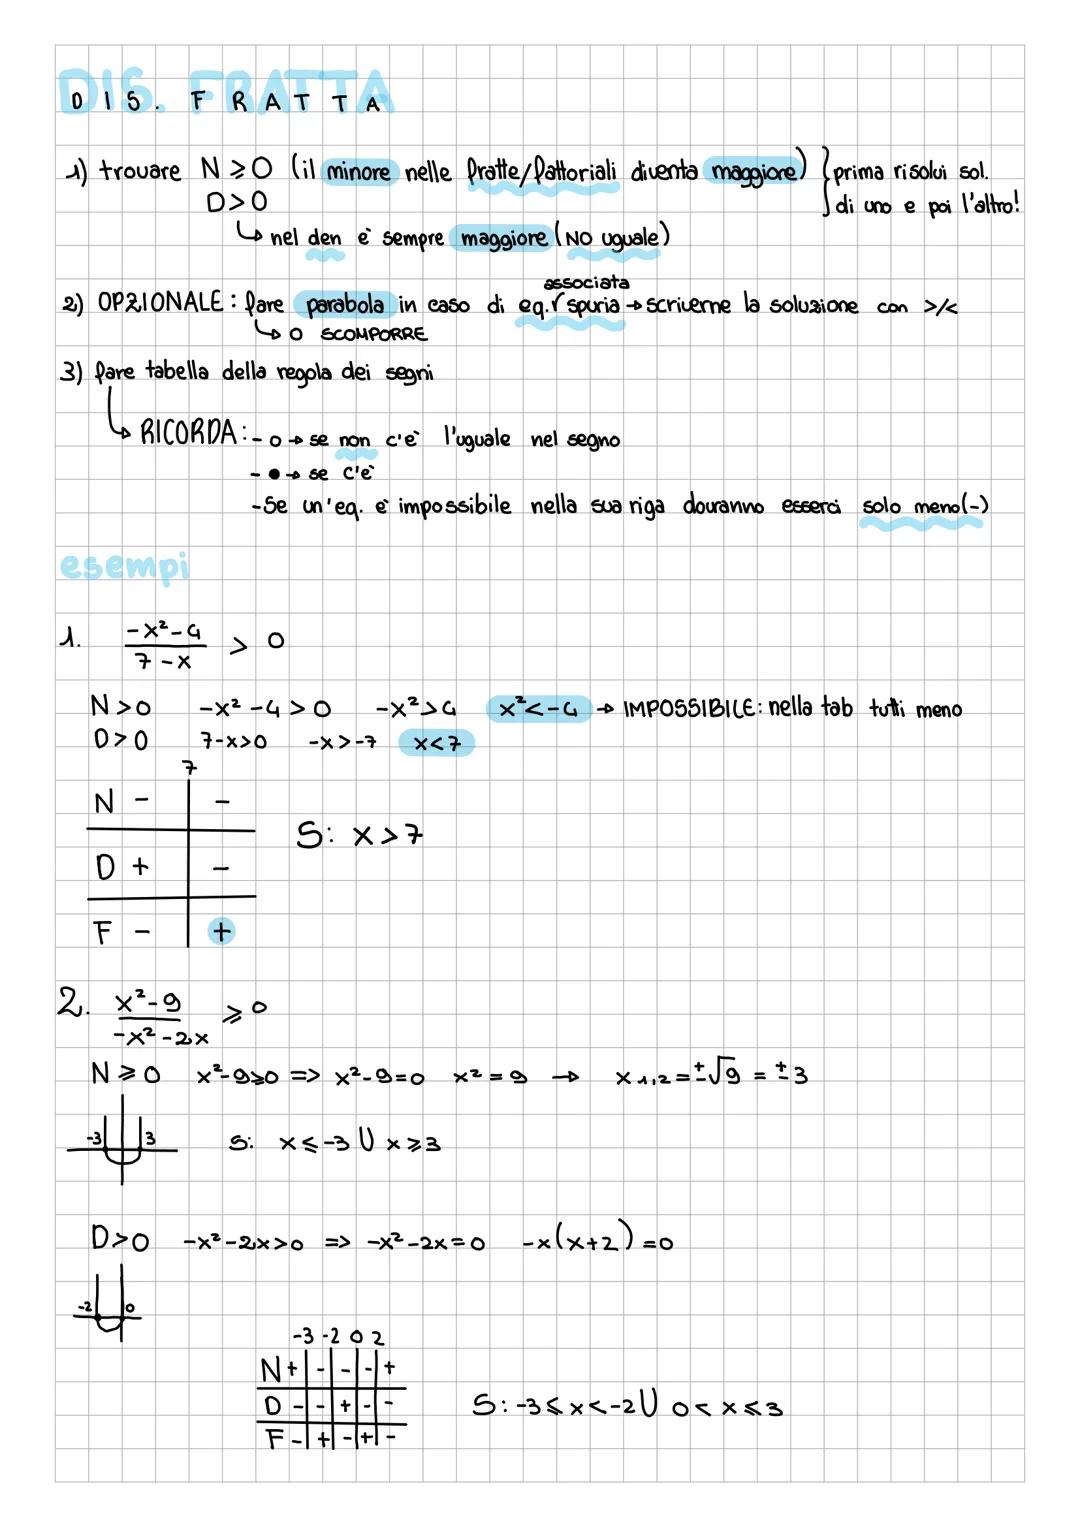 DIS. FRATTA
1) trovare N ≥ 0 (il minore nelle fratte/fattoriali diventa maggiore) } prima risolvi sol.
D > 0 di uno e poi l'altro!
↳ nel den è sempre maggiore (NO uguale)
associata
2) OPZIONALE: fare parabola in caso di eq. spuria → scriverne la soluzione con >/<
↳ O SCOMPORRE
3) fare tabella della regola dei segni
↳ RICORDA: - o → se non c'è l'uguale nel segno
- ● → se c'è
- Se un'eq. è impossibile nella sua riga dovranno esserci solo meno(-)
esempi
1. (-x²-4)/(7-x) > 0
N>0 -x²-4>0 -x²>4 x²<-4 → IMPOSSIBILE: nella tab tutti meno
D>0 7-x>0 -x>-7 x<7
7
N - -
S: x>7
D + -
F - +
2. (x²-9)/(-x²-2x) ≥ 0
N ≥ 0 x²-9≥0 => x²-9=0 x²=9 → x1,2=±√9 = ±3
-3 3 S: x≤-3 U x≥3
D>0 -x²-2x>0 => -x²-2x=0 -x(x+2)=0
-2 0
-3 -2 0 2
N + - - - +
D - - + - - S: -3≤x<-2 U 0<x≤3
F - + - + -